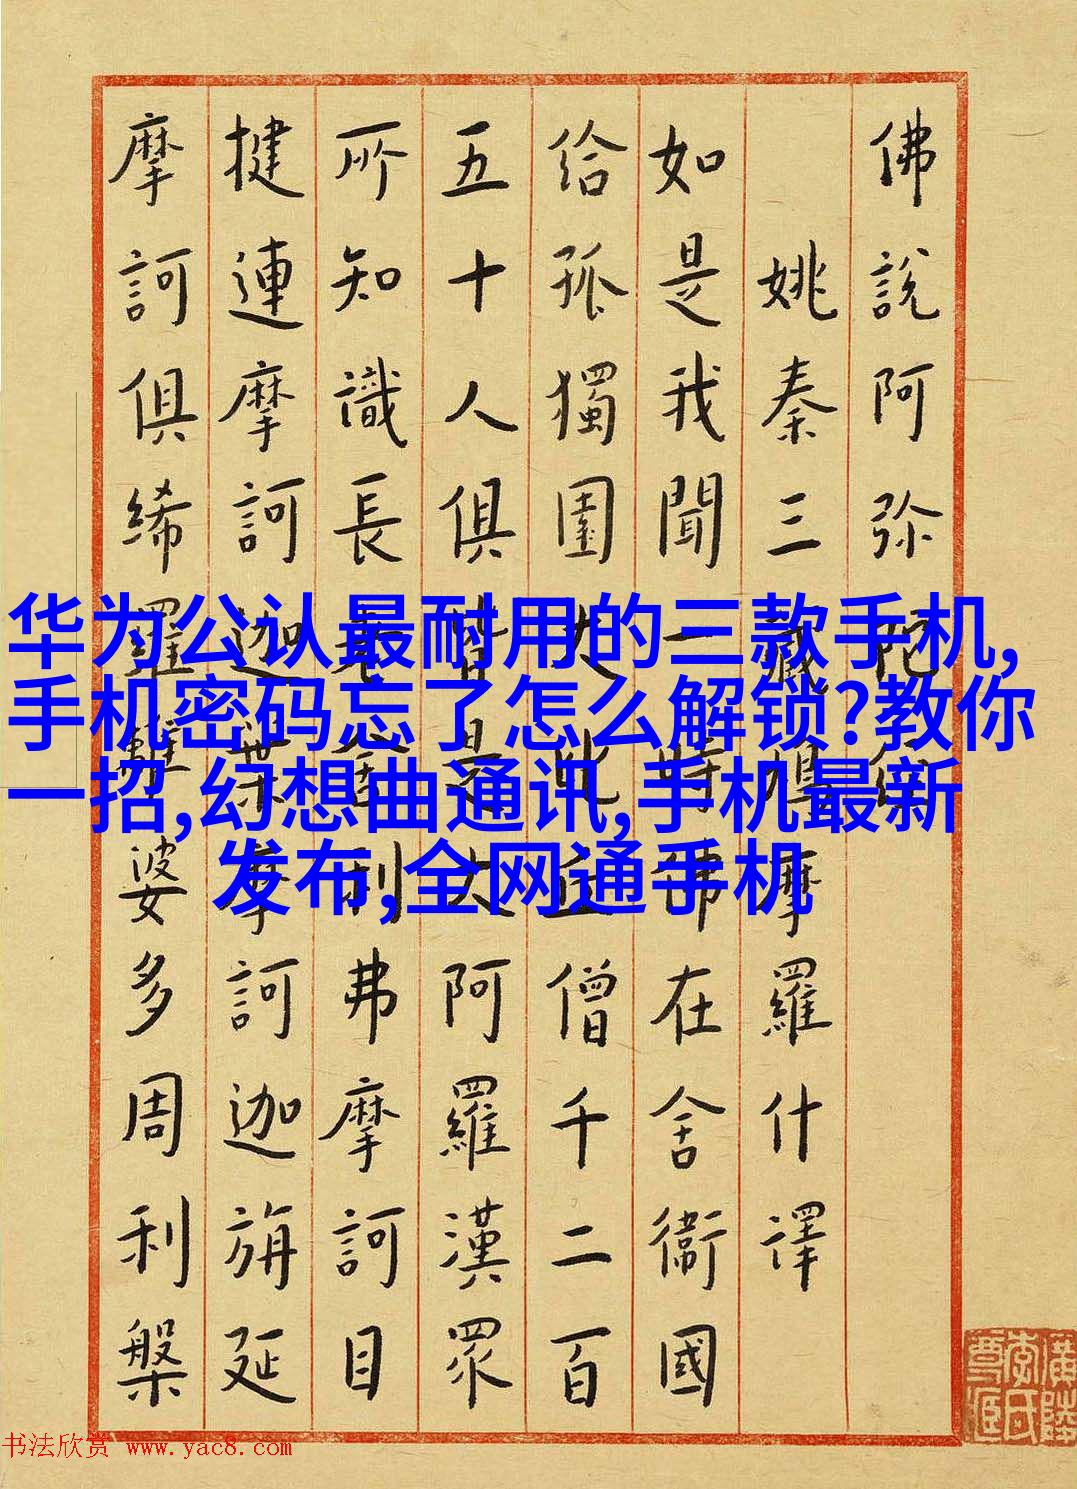 佛說阿弥陀經
姚秦三藏鳩摩羅什譯
如是我聞一時佛在舍衞國
给孤獨園大比丘僧千二百
五十人俱皆是大阿羅漢眾
所知識長老舍利弗摩訶目
揵連摩訶迦葉摩訶迦旃延
摩訶俱絺羅離婆多周利槃
华为公认最耐用的三款手机,
手机密码忘了怎么解锁?教你
一招,幻想曲通讯,手机最新
发布,全网通手机
书法欣赏 www.yac8.com